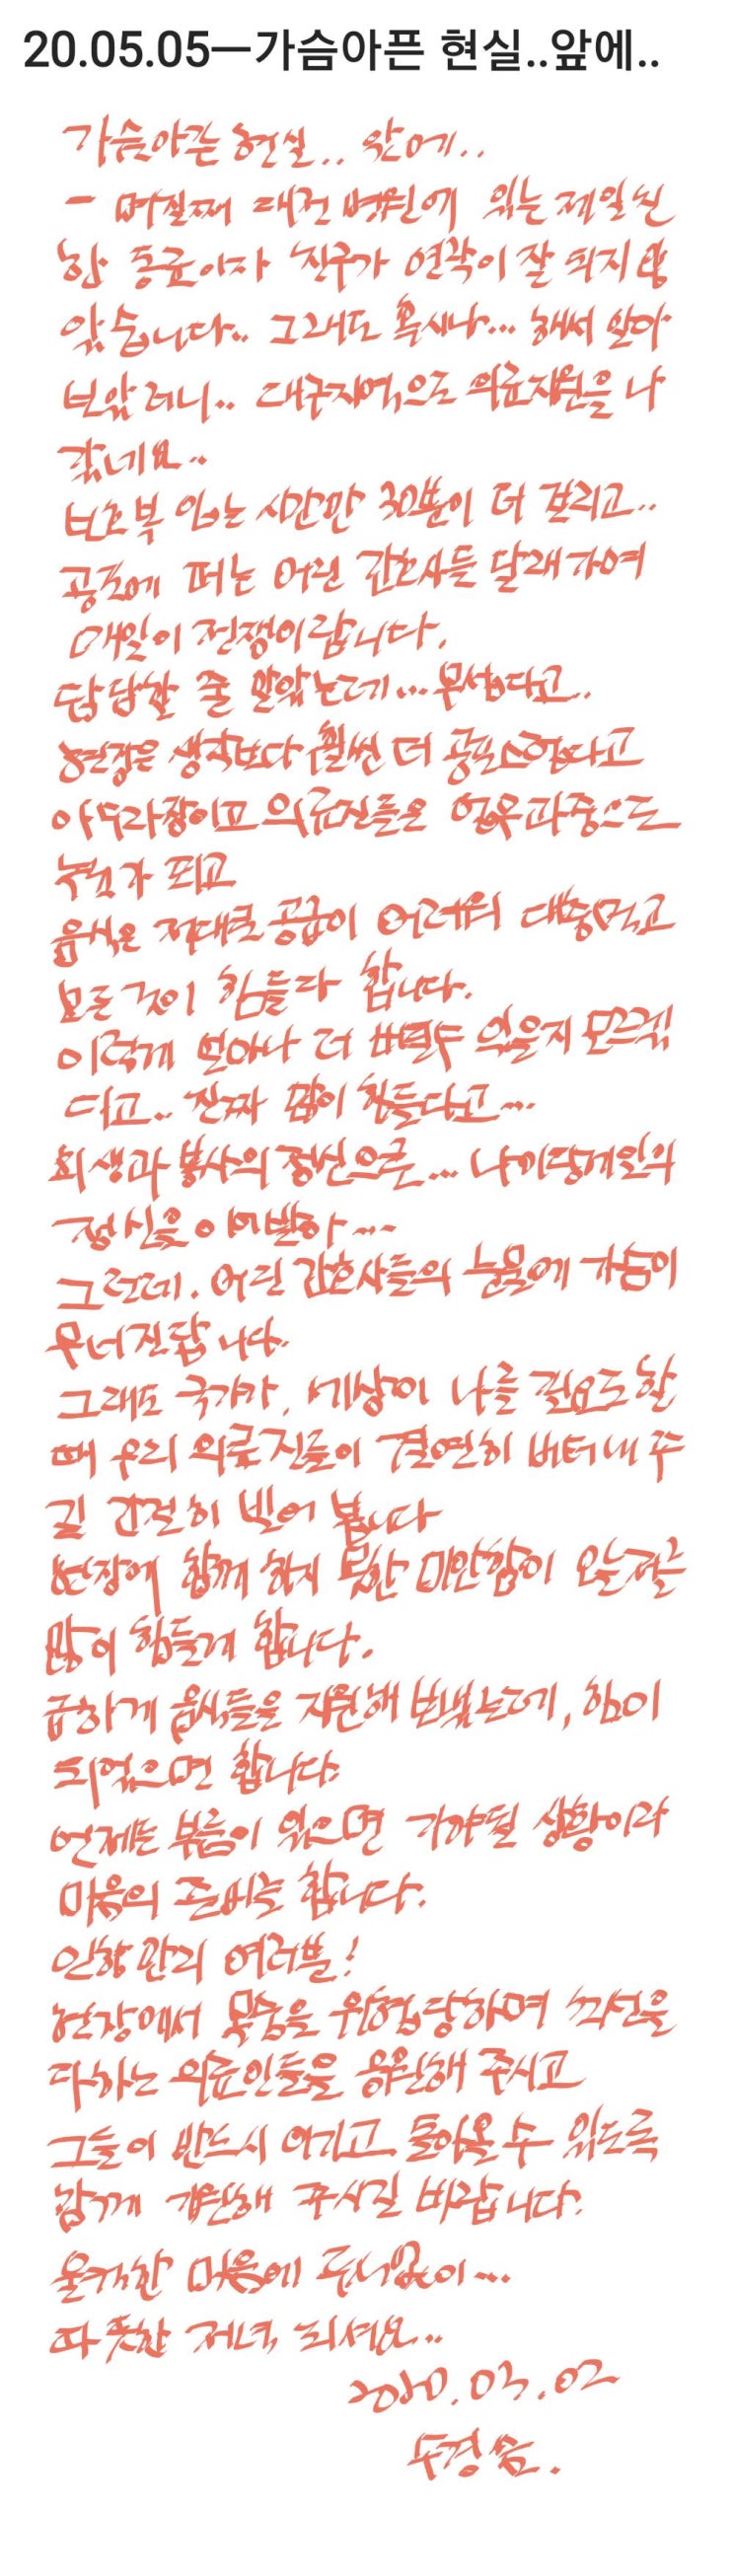 20.05.05—가슴아픈 현실..앞에..
가슴아픈 현실.. 앞에..
- 며칠째 대전 병원에 있는 제일 친
한 동료이자 친구가 연락이 잘 되지 않
았습니다.. 그래도 혹시나... 해서 알아
보았더니.. 대구지역으로 의료지원을 나
갔네요..
보호복 입는 시간만 30분이 더 걸리고..
공포에 떠는 어린 간호사들 달래가며
매일이 전쟁이랍니다.
담담할 줄 알았는데... 무섭다고..
현장은 생각보다 훨씬 더 공포스럽다고
아수라장이고 의료진들은 업무과중으로
녹초가 되고
음식은 제대로 공급이 어려워 대충먹고
모든 것이 힘들다 합니다.
이렇게 얼마나 더 버틸수 있을지 모르겠
다고.. 진짜 많이 힘들다고...
희생과 봉사의 정신으로... 나이팅게일의
정신을 이어받아...
그런데. 어린 간호사들의 눈물에 가슴이
무너진답니다.
그래도 국가가, 세상이 나를 필요로 할
때 우리 의료진들이 결연히 버텨내 주
길 간절히 빌어 봅니다
현장에 함께 하지 못한 미안함이 오늘따라
많이 힘들게 합니다.
급하게 음식들을 지원해 보냈는데, 힘이
되었으면 합니다.
언제든 부름이 있으면 가야될 상황이라
마음의 준비는 합니다.
인향만리 여러분!
현장에서 목숨을 위협당하며 최선을
다하는 의료인들을 응원해 주시고
그들이 반드시 이기고 돌아올 수 있도록
함께 기원해 주시길 바랍니다.
울컥한 마음에 두서없이...
따뜻한 저녁 되셔요..
2020.03.02